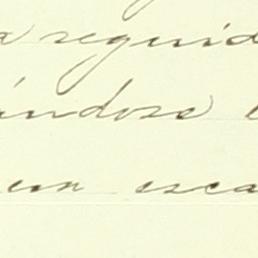 a seguid
ándose e
en esca